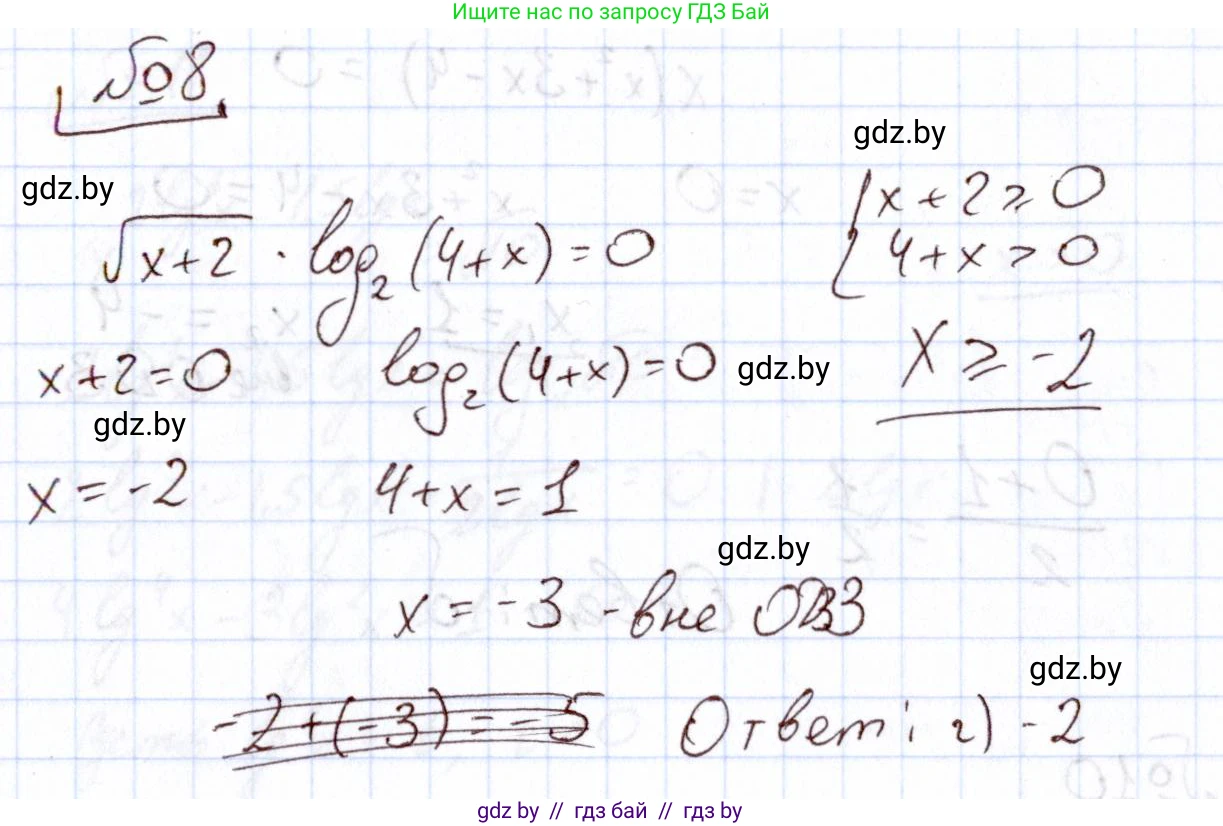 Ищите нас по запросу ГДЗ Бай
№8
gdz.by
gdz.by
√x+2 · log₂(4+x) = 0
{ x+2 ≥ 0
4+x > 0
x+2=0
log₂(4+x)=0
gdz.by
x ≥ -2
gdz.by
x = -2
4+x = 1
gdz.by
x = -3 - вне ОДЗ
gdz.by
-2+(-3)=-5
Ответ: г) -2
gdz.by // гдз бай // гдз by